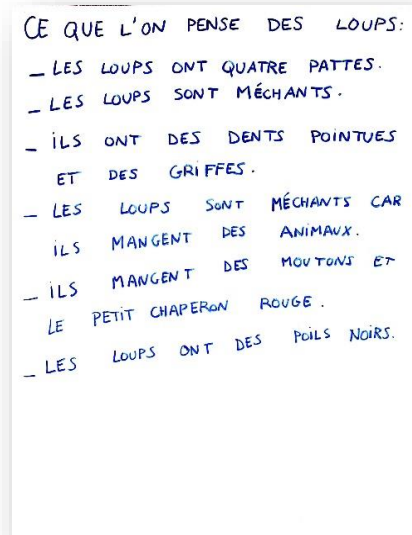 CE QUE L'ON PENSE DES LOUPS:
- LES LOUPS ONT QUATRE PATTES.
- LES LOUPS SONT MÉCHANTS.
- iLS ONT DES DENTS POINTUES
ET DES GRiFFES.
- LES LOUPS SONT MÉCHANTS CAR
iLS MANGENT DES ANiMAUX.
- iLS MANGENT DES MOUTONS ET
LE PETiT CHAPERON ROUGE.
- LES LOUPS ONT DES POiLS NOiRS.